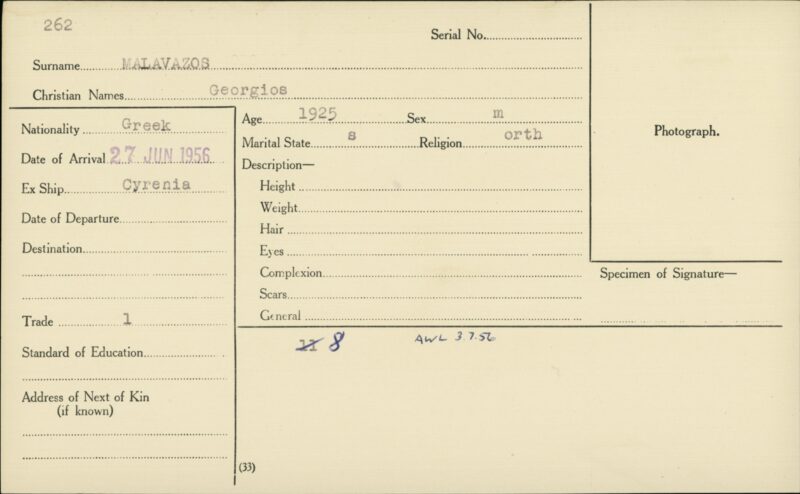 262
Serial No.
Surname MALAVAZOS
Christian Names Georgios
Nationality Greek
Date of Arrival 27 JUN 1956
Ex Ship Cyrenia
Date of Departure
Destination
Trade 1
Standard of Education
Address of Next of Kin
(if known)
Age 1925 Sex m
Marital State s Religion orth
Description—
Height
Weight
Hair
Eyes
Complexion
Scars
General
11 8 AWL 3.7.56
(33)
Photograph.
Specimen of Signature—